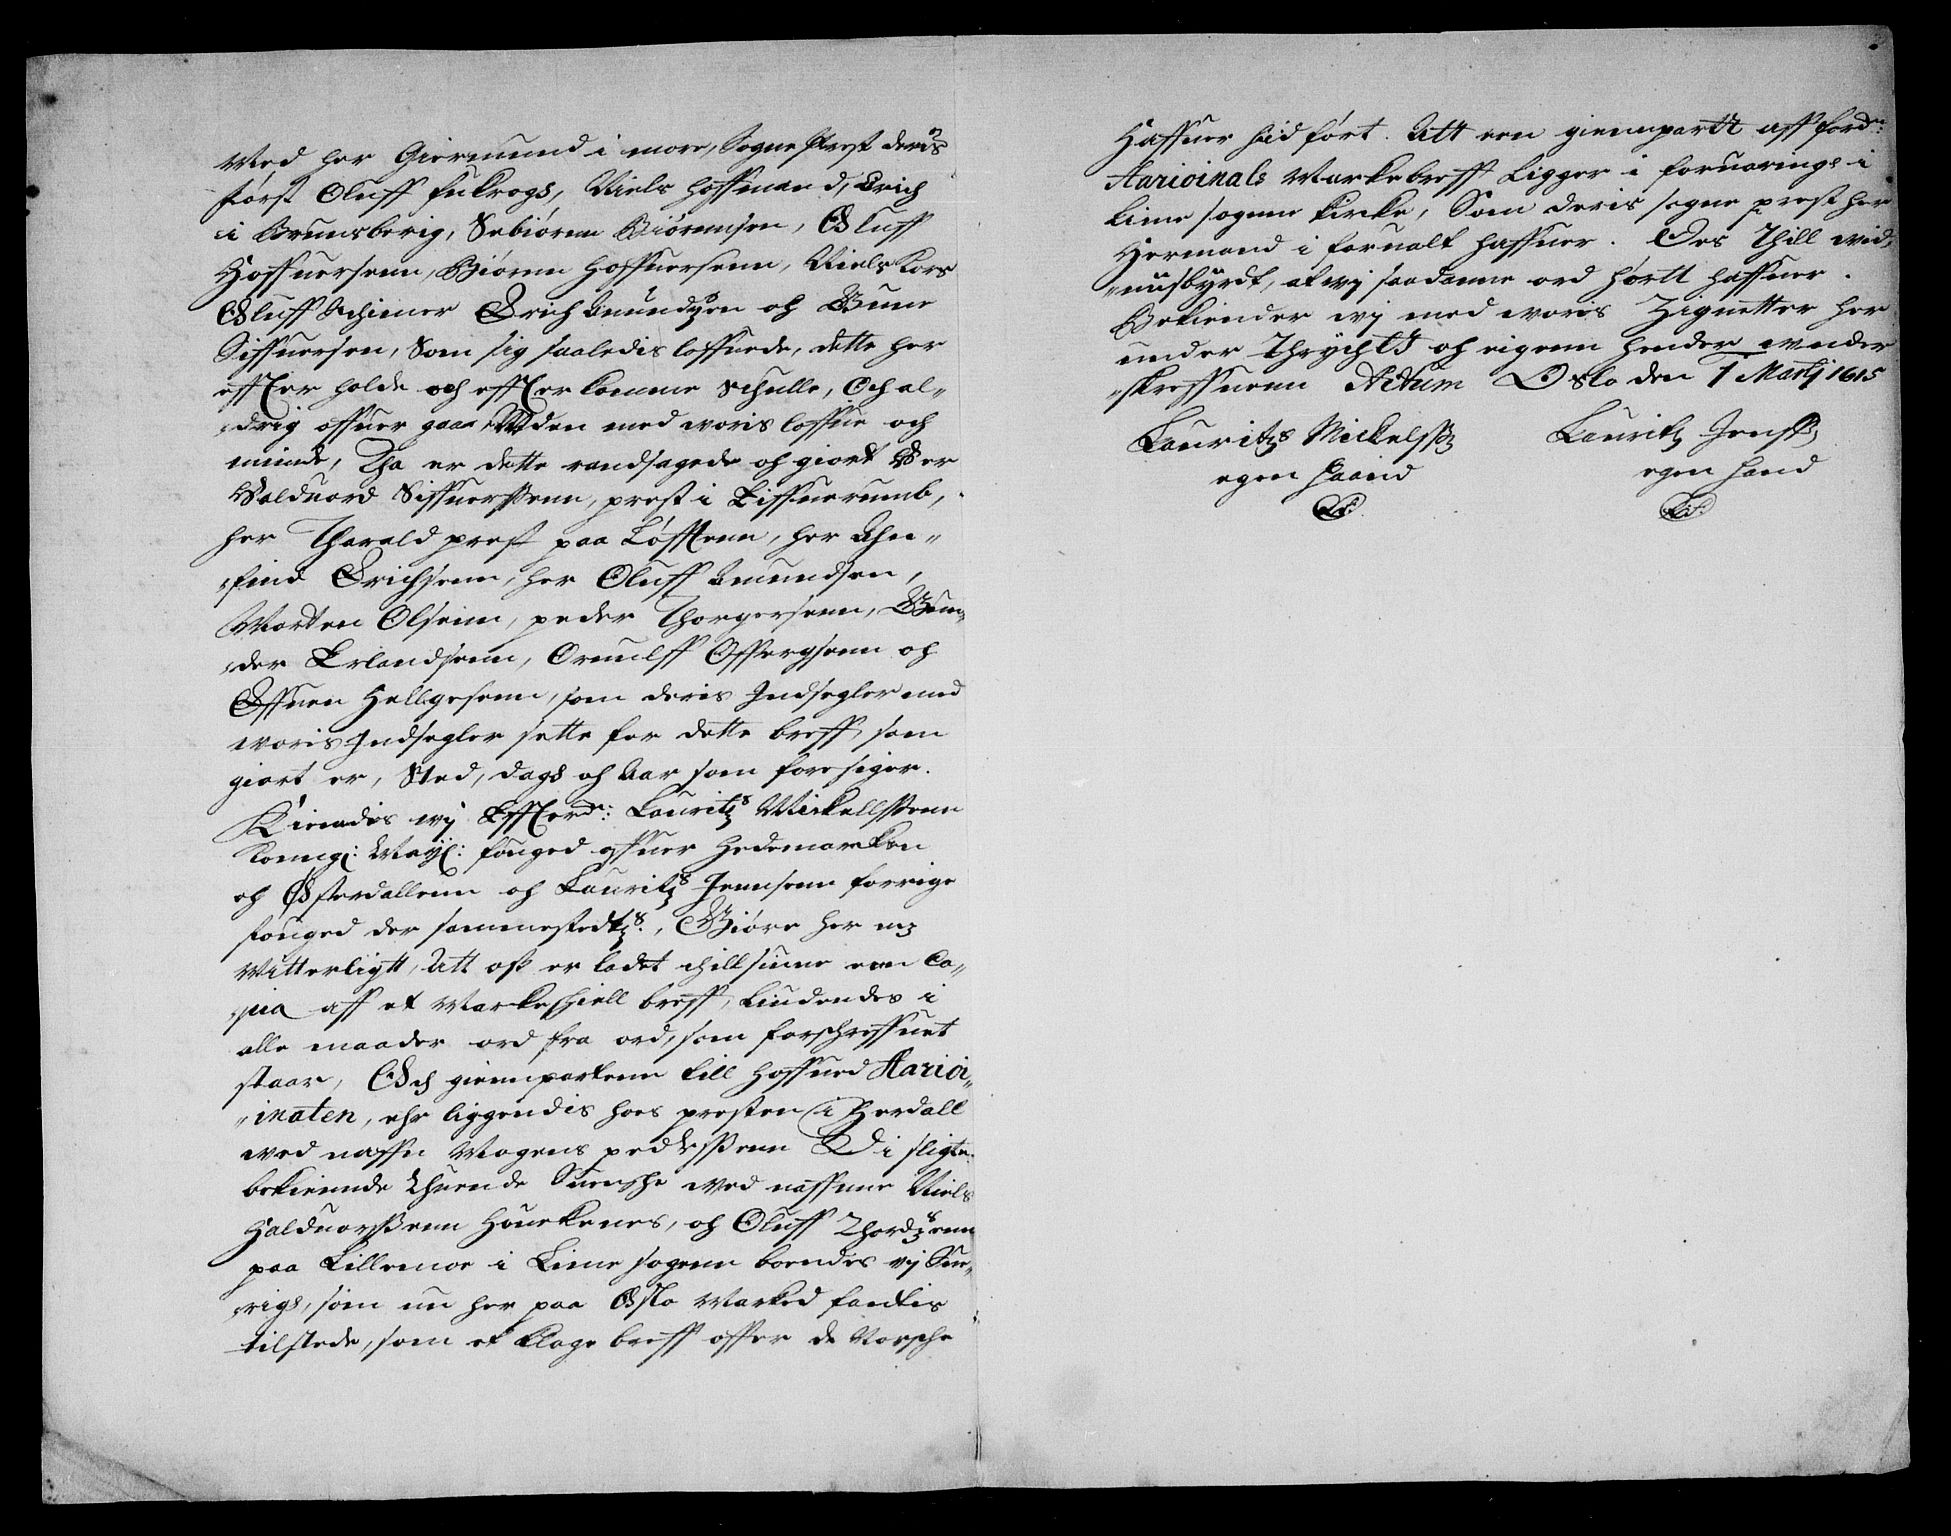 Med her Giermund i more, Sogne Prest deris
først Oluff kukrogs, Niels hoffmand, Erich
i Brunsberig, Sebiørnn Biørnnsen, Oluff
Hoffuersenn, Biørnn Hoffuersenn, Niels Kors
Oluff Schiener Erich Amundsen och Gune
Siffuersen, Som sig saaledis loffuede, dette her
effter holde och effter komme schulle, Och al„
„drig offuer gaa, Uden med woris loffue och
minde, Tha er dette randsagede och giordt Her
Halduord Siffuerssenn, prest i Biffuerumb,
her Tharald prest paa Løfftenn, her Ahn„
„find Erichsenn, her Oluff Amundsen,
Morten Olsenn, peder Thorgersenn, Gun„
„der Erlandsenn, Ormulff Assersenn och
Effuen Helligesenn, som deris Indsegler med
woris Indsegler sette for dette breff, som
giort er, Sted, dags och Aar som foresiger.
Kiendis wy Effterd: Lauritz Mickellssenn
Konngl: May: fouged offuer Hedemarcken
och Østerdallenn och Lauritz Jennsenn forrige
fouged der sammestedtz, Giøre her med
Witterligtt, Att oss er ladet thill siune een Co„
„pia aff et Markeschiell breff, Liudendes i
alle maader ord fra ord, som forschreffuet
staar, Och gienparten till hoffued Harioi„
„inaten, ehr liggendis hoes presten i Herdall
wed naffn Mogens pederssenn Di sligte
bekiennde thuende Suenshe wed naffnne Niels
Halduorssenn Houckenes, och Oluff Thordsenn
paa Lillemoe i Lime sogenn boendes vj Sue„
„rige, som nu her paa Oslo Marked fandtis
tilstede, som et klage breff offer de Norsche
Haffuer hid ført. Att een gienpartt aff ford:
Harioinals Markebreff Ligger i foruaring i
Lime sogenn kircke, Som deris sogne prest her
Hermand i forualt haffuer. Des Thill wid„
„nisbyrdt, at wy saadanne ord hørtt haffuer.
Bekiender wy med woris Zignetter her
under Thrycht och eigenn hender wnder
„skreffuenn Actum Oslo den 1 Martj 1615
Lauritz Mickelss Lauritz Jenss
egen haand egen hand
LS. LS.